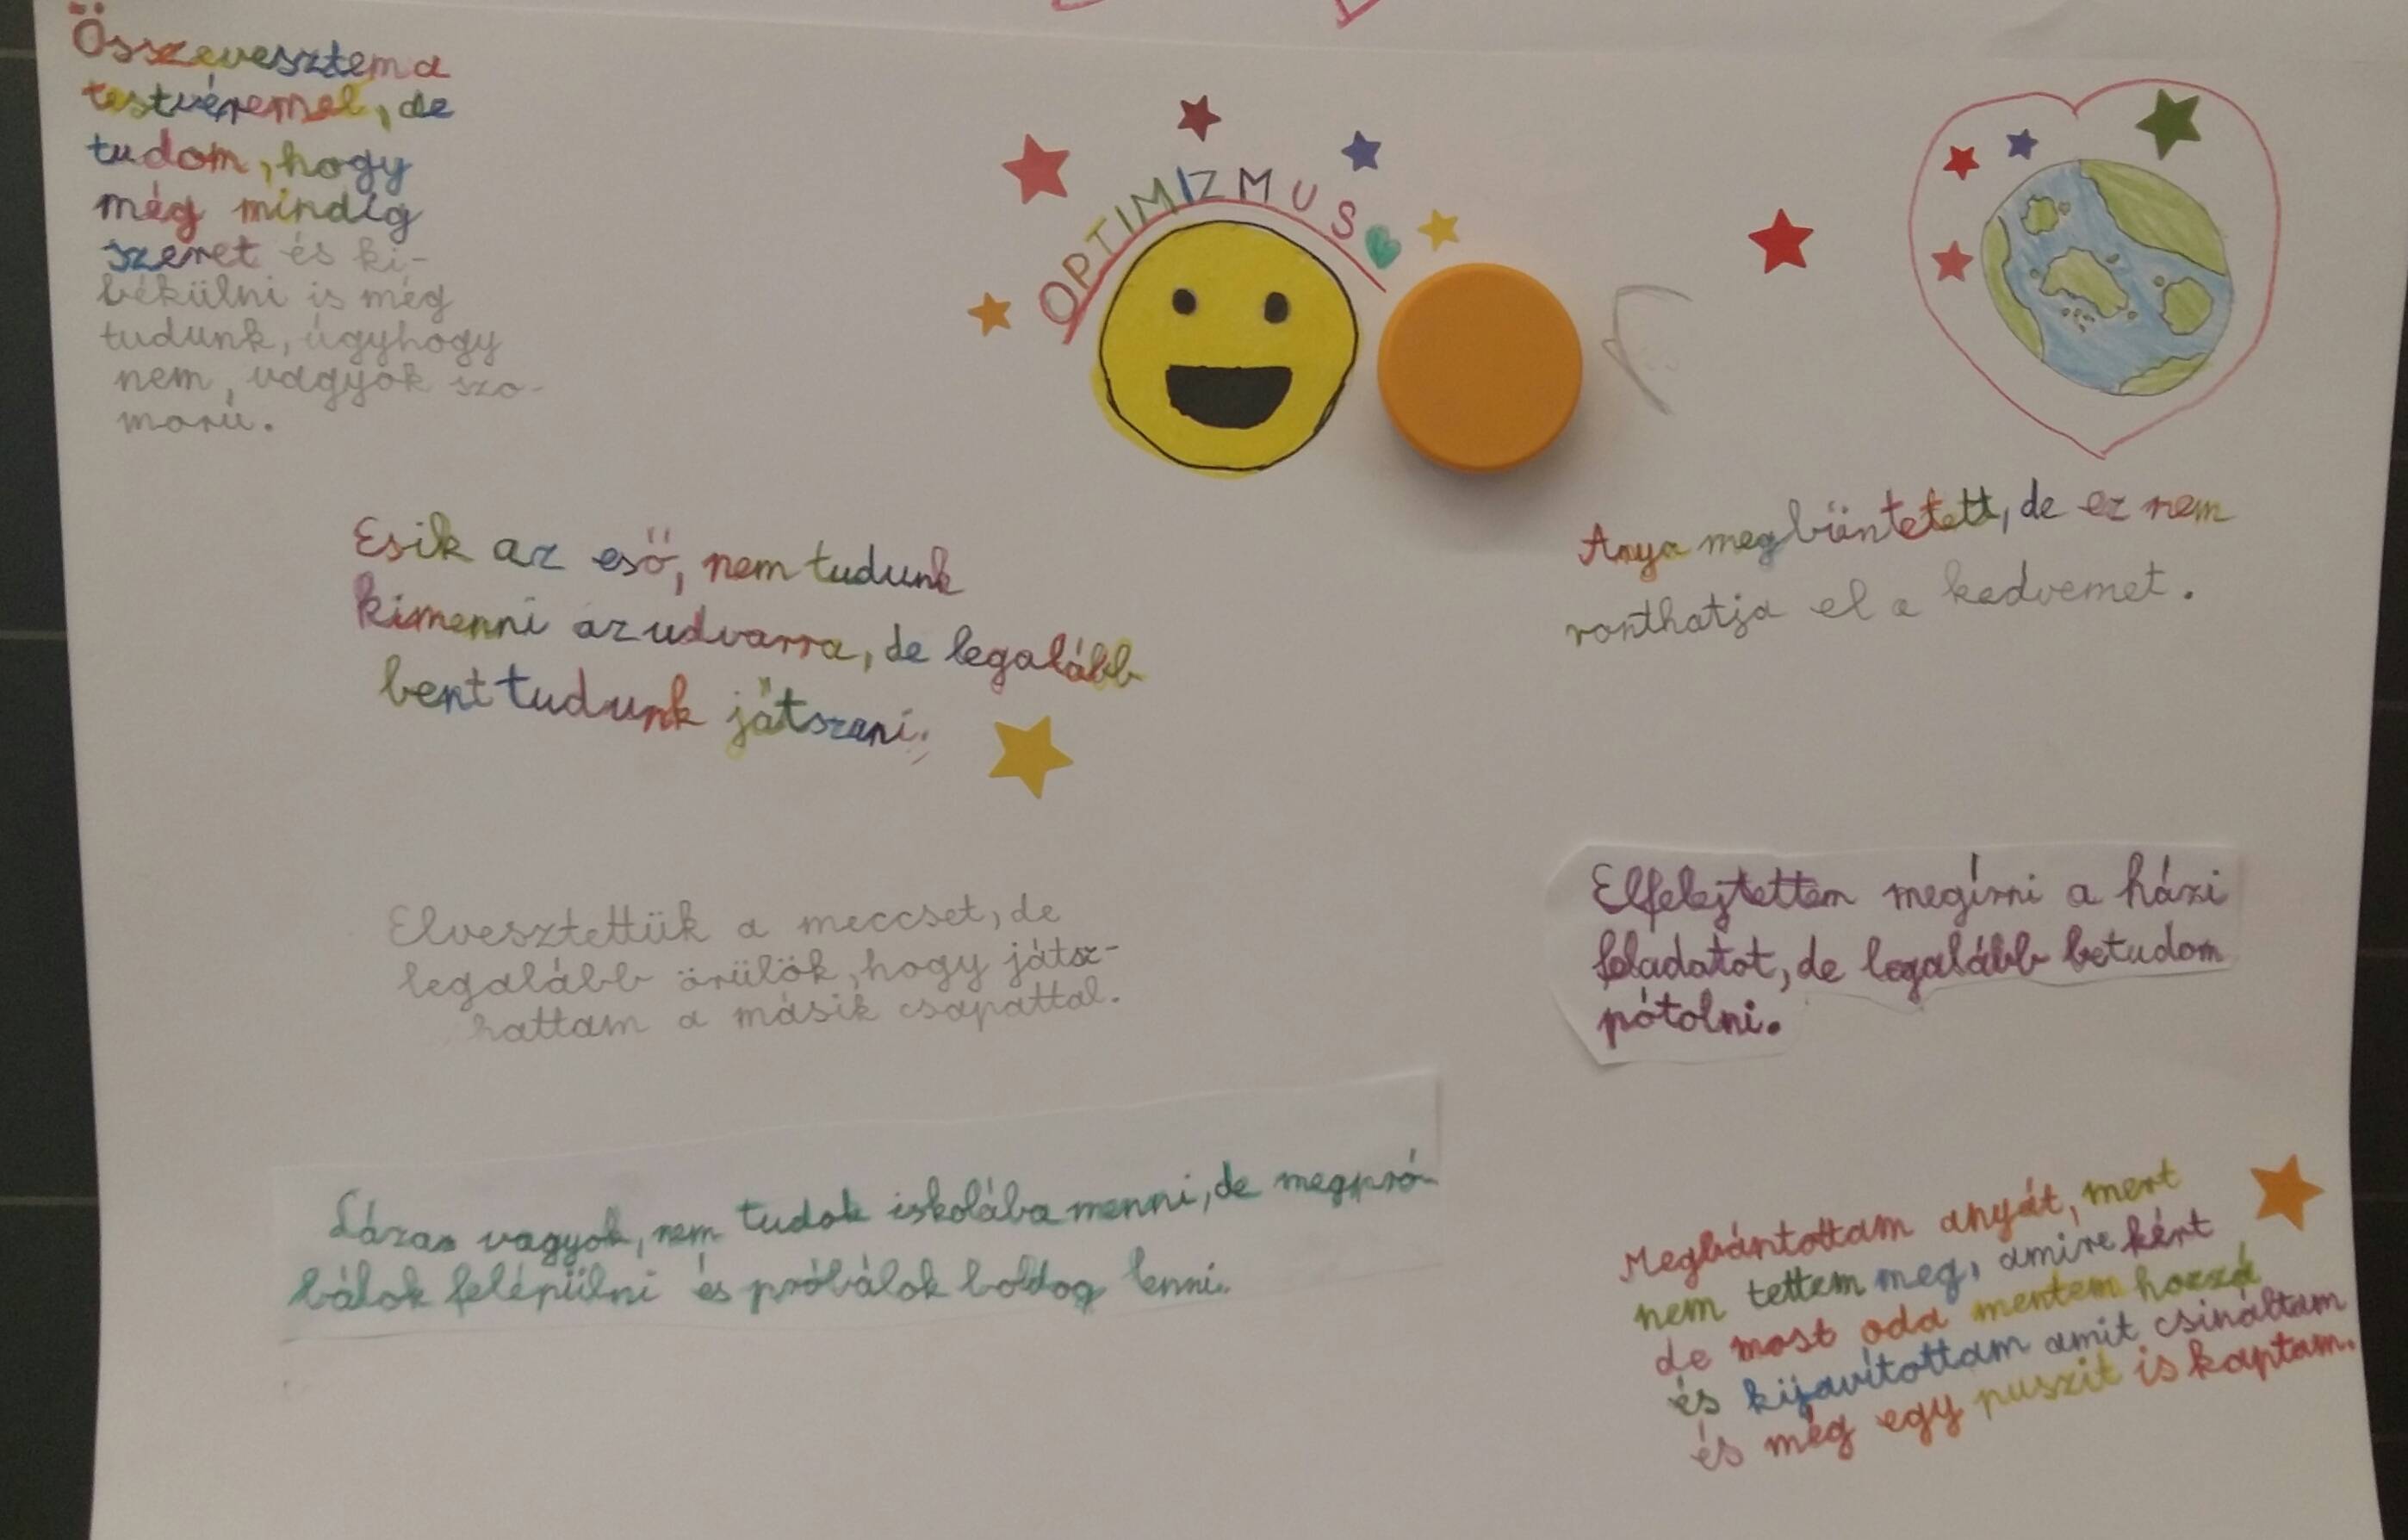 Összevesztem a
testvéremel, de
tudom, hogy
még mindig
szeret és ki-
békülni is még
tudunk, úgyhogy
nem, vagyok szo-
morú.
OPTIMIZMUS
Esik az eső, nem tudunk
kimenni az udvarra, de legalább
bent tudunk játszani.
Anya megbüntetett, de ez nem
ronthatja el a kedvemet.
Elvesztettük a meccset, de
legalább örülök, hogy játsz-
hattam a másik csapattal.
Elfelejtettem megírni a házi
feladatot, de legalább betudom
pótolni.
Lázas vagyok, nem tudok iskolába menni, de megpró-
bálok felépülni és próbálok boldog lenni.
Megbántottam anyát, mert
nem tettem meg, amire kért
de most oda mentem hozzá
és kijavítottam amit csináltam
és még egy puszit is kaptam.